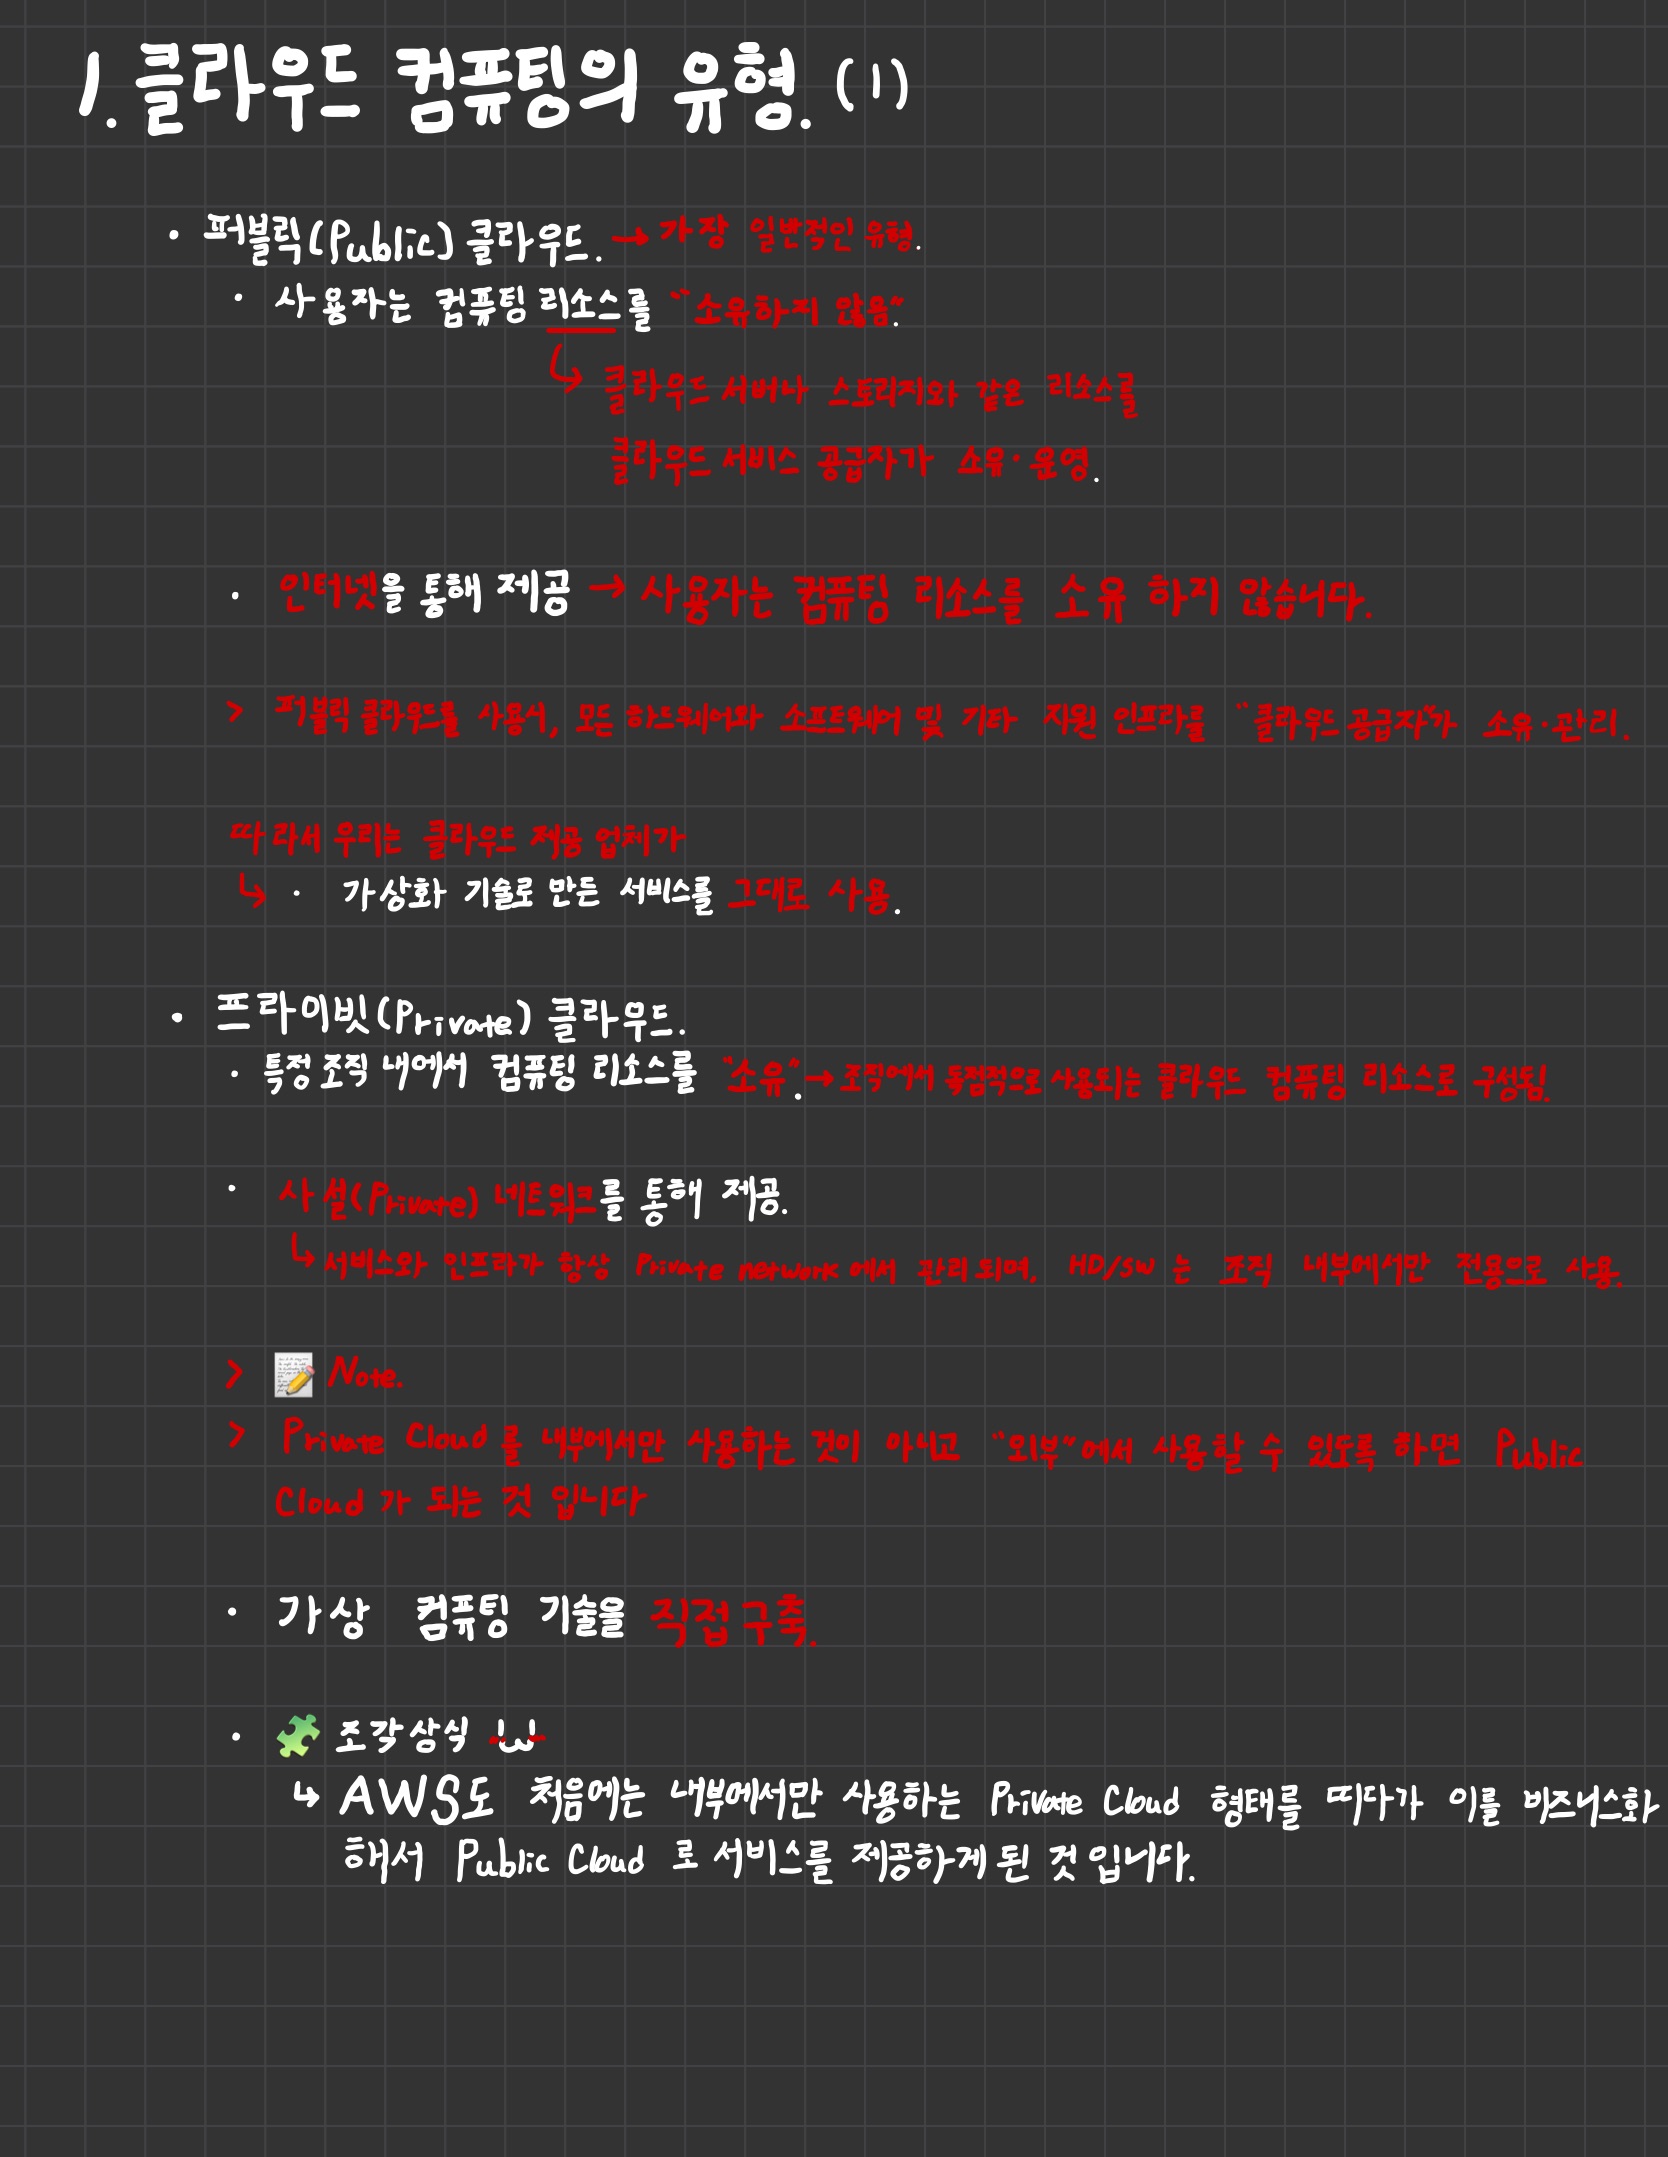 1. 클라우드 컴퓨팅의 유형. (1)
· 퍼블릭(Public) 클라우드. → 가장 일반적인 유형.
· 사용자는 컴퓨팅 리소스를 "소유하지 않음".
↳ 클라우드 서버나 스토리지와 같은 리소스를
클라우드 서비스 공급자가 소유·운영.
· 인터넷을 통해 제공 → 사용자는 컴퓨팅 리소스를 소유 하지 않습니다.
> 퍼블릭 클라우드를 사용시, 모든 하드웨어와 소프트웨어 및 기타 지원 인프라를 "클라우드 공급자"가 소유·관리.
따라서 우리는 클라우드 제공 업체가
↳ · 가상화 기술로 만든 서비스를 그대로 사용.
· 프라이빗(Private) 클라우드.
· 특정 조직 내에서 컴퓨팅 리소스를 "소유". → 조직에서 독점적으로 사용되는 클라우드 컴퓨팅 리소스로 구성됨.
· 사설(Private) 네트워크를 통해 제공.
↳ 서비스와 인프라가 항상 Private network 에서 관리 되며, HD/SW 는 조직 내부에서만 전용으로 사용.
> 📝 Note.
> Private Cloud 를 내부에서만 사용하는 것이 아니고 "외부"에서 사용할 수 있도록 하면 Public
Cloud 가 되는 것 입니다
· 가상 컴퓨팅 기술을 직접 구축.
· 🧩 조각상식
↳ AWS도 처음에는 내부에서만 사용하는 Private Cloud 형태를 띠다가 이를 비즈니스화
해서 Public Cloud 로 서비스를 제공하게 된 것 입니다.